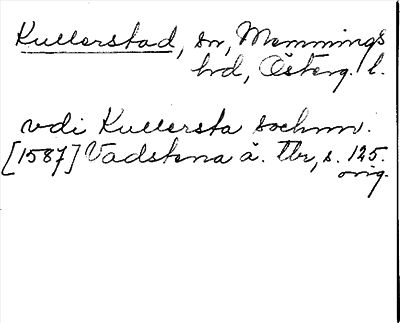 Kullerstad, sn, Memmings
hrd, Österg. l.
vdi Kullersta sochnn.
[1587] Vadstena ä. Tbr, s. 125.
orig.